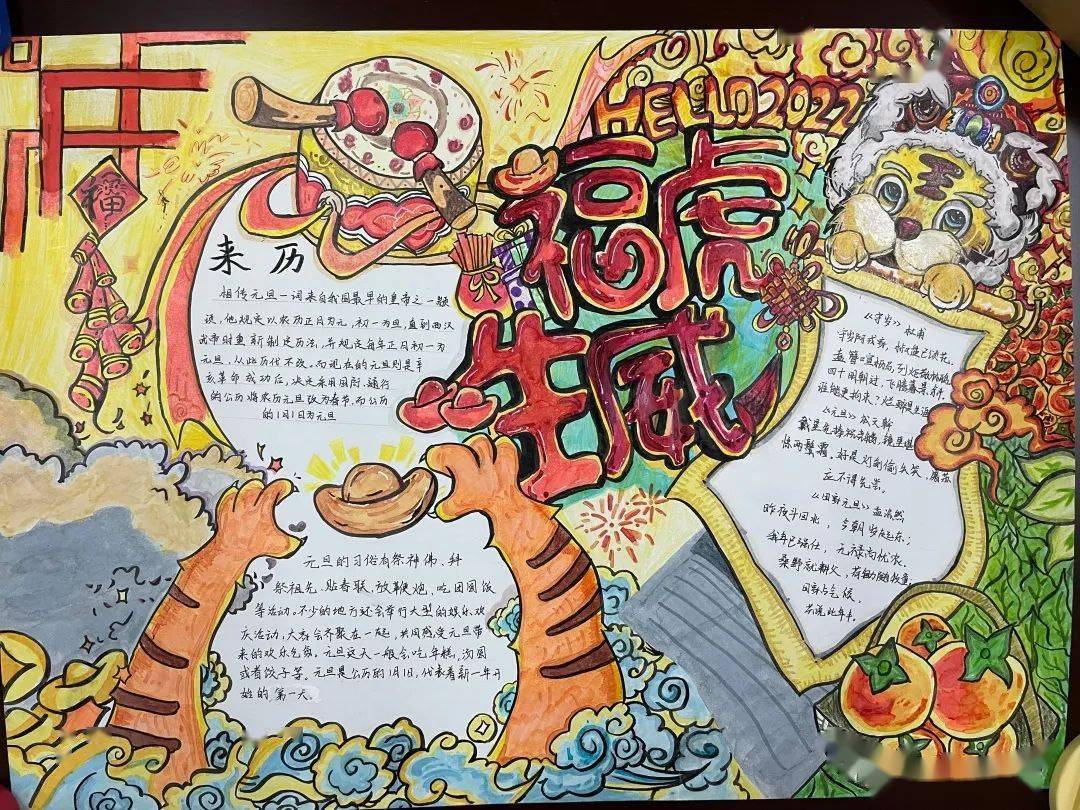 HELLO2022
福
福虎
生威
来历
相传元旦一词来自我国最早的皇帝之一颛
顼,他规定以农历正月为元,初一为旦,直到西汉
武帝时重新制定历法,并规定每年正月初一为
元旦,从此历代不改。而现在的元旦则是辛
亥革命成功后,决定采用国际通行
的公历将农历元旦改为春节,而公历
的1月1日为元旦
元旦的习俗有祭神佛、
祭祖先、贴春联、放鞭炮、吃团圆饭
等活动,不少的地方还会举行大型的娱乐欢
庆活动,大家会齐聚在一起,共同感受元旦带
来的欢乐气氛。元旦这天一般会吃年糕,汤圆
或者饺子等。元旦是公历的1月1日,代表着新一年开
始的第一天。
《守岁》杜甫
守岁阿戎家,椒盘已颂花。
盍簪喧枥马,列炬散林鸦。
四十明朝过,飞腾暮景斜。
谁能更拘束?烂醉是生涯
《元旦》
惊两鬓霜,好是灯前偷失笑,屠苏
应不得先尝。
《田家元旦》孟浩然
昨夜斗回北,今朝岁起东;
我年已强仕,无禄尚忧农。
桑野就耕父,荷锄随牧童;
田家占气候,
共说此年丰。